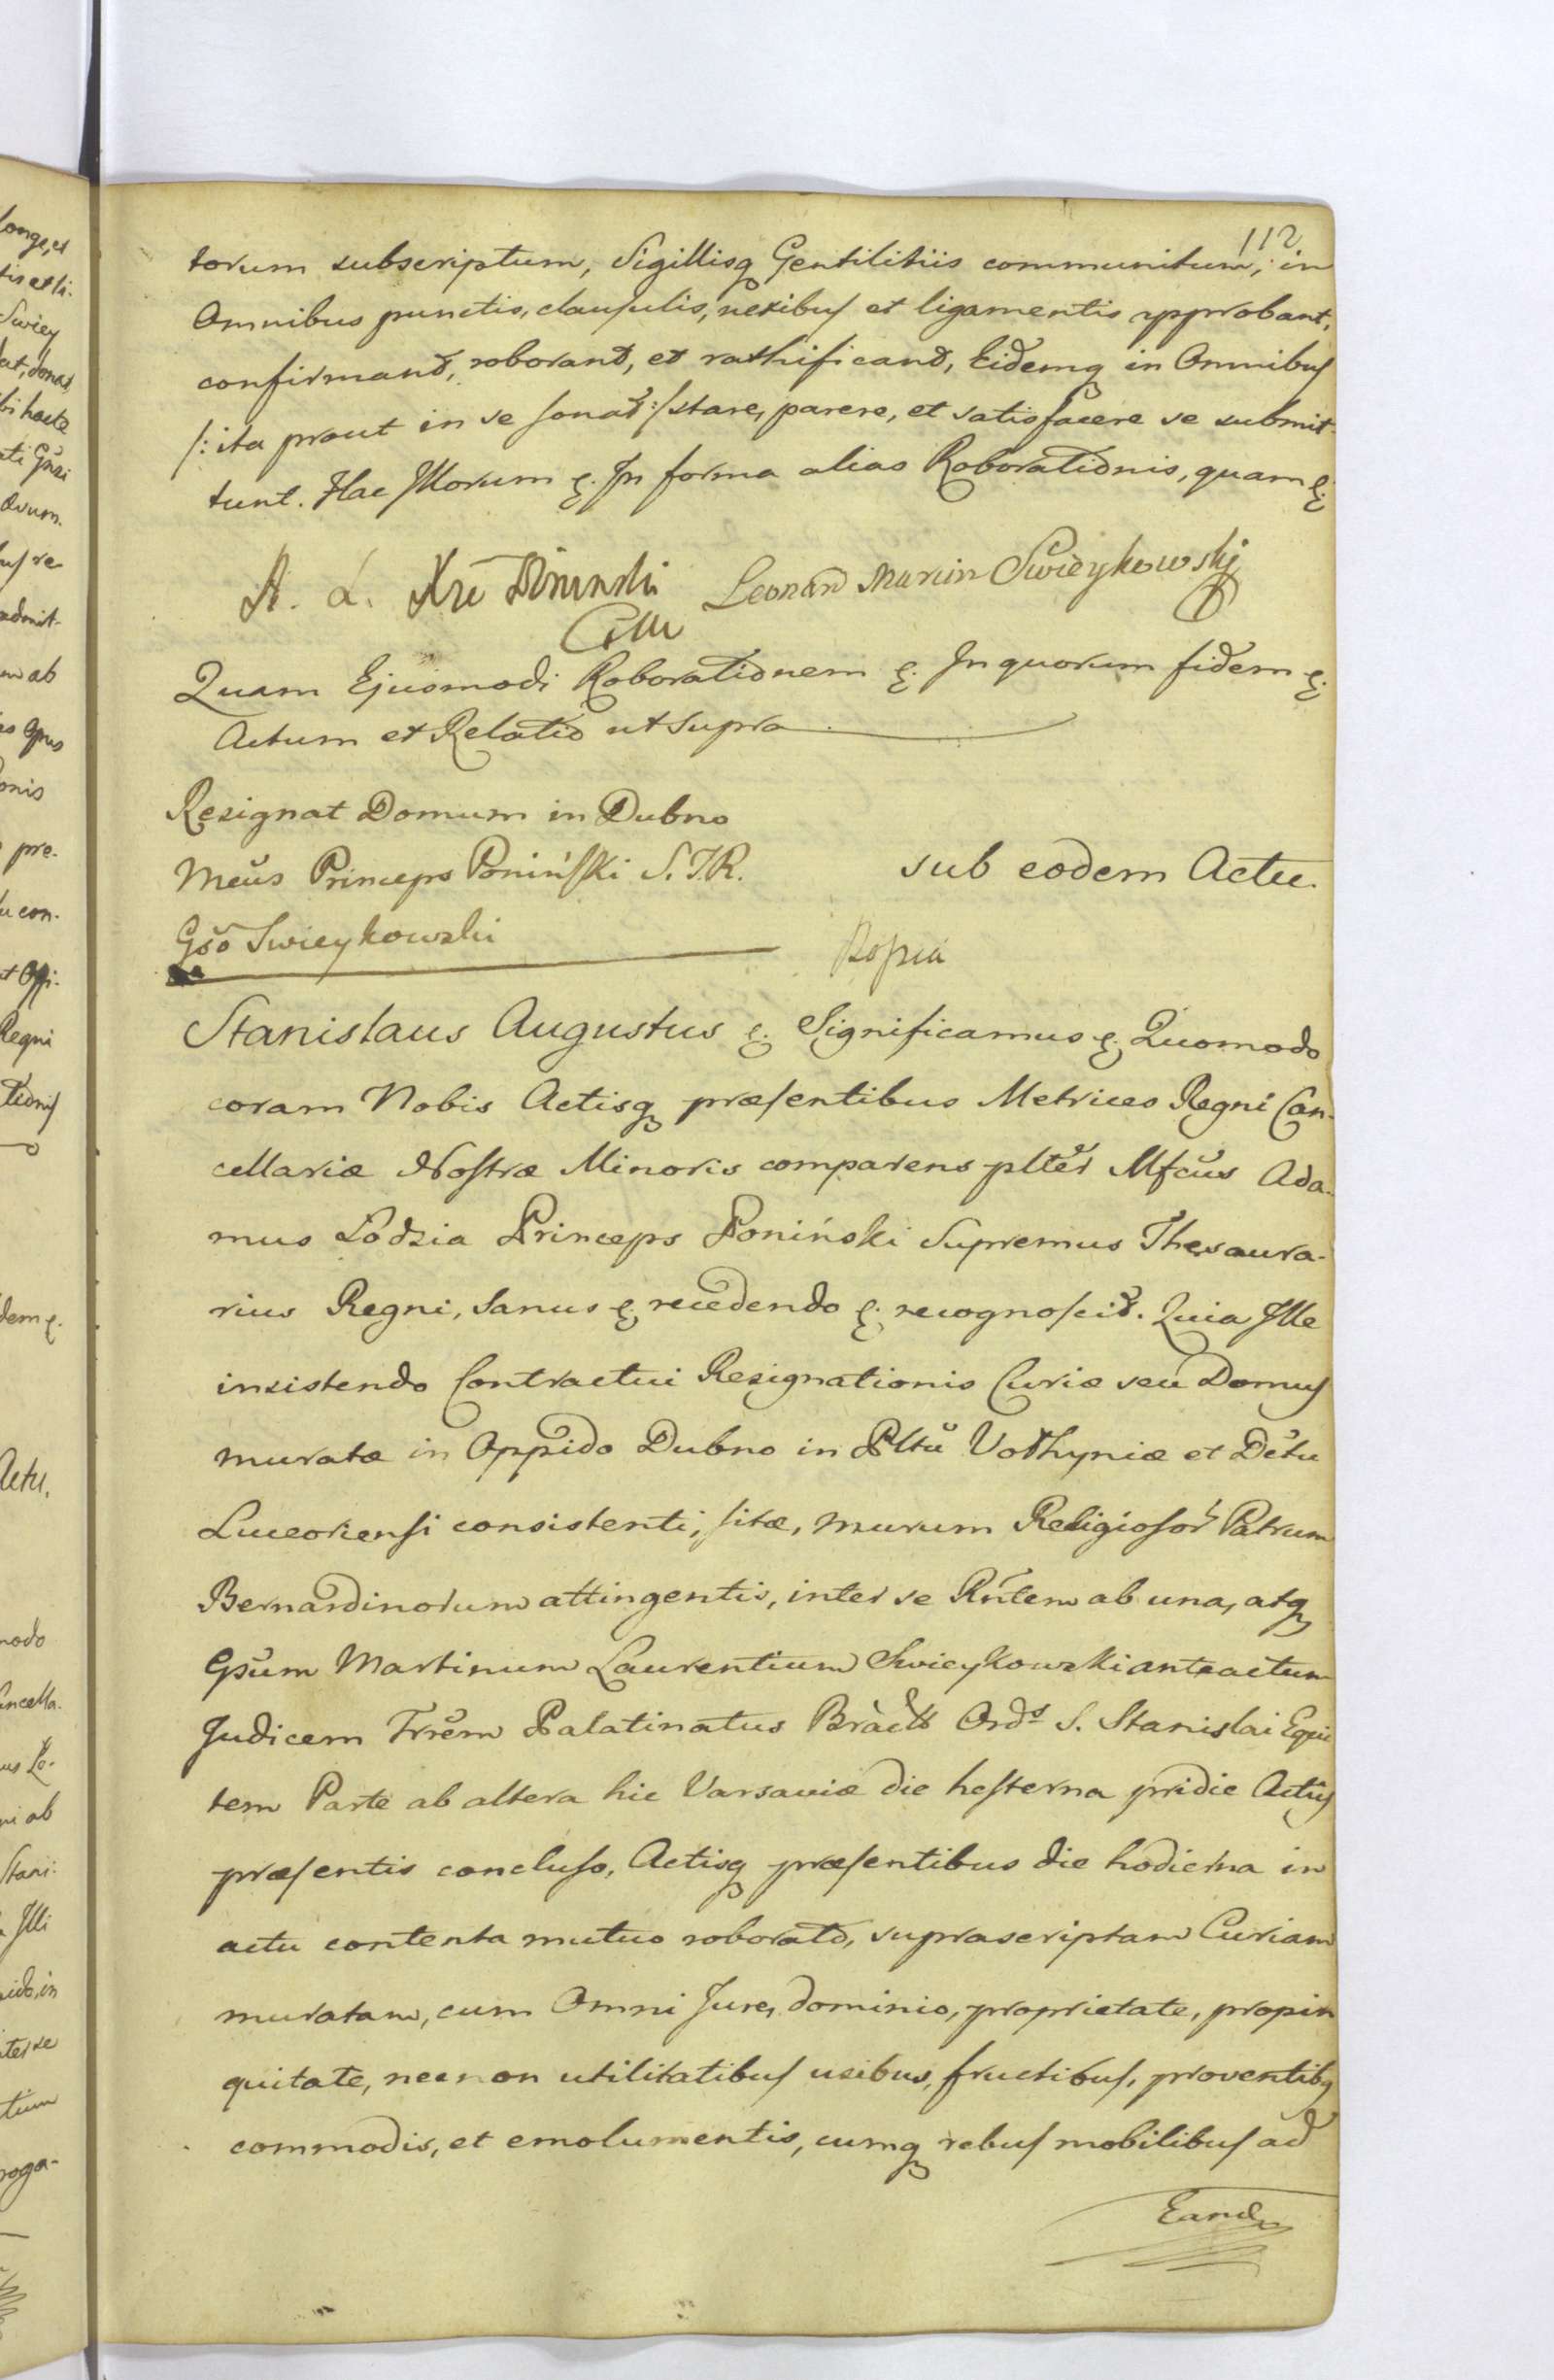 112
torum subscriptum, Sigillisq Gentilitiis communitum, in
Omnibus punctis, clausulis, nexibus et ligamentis approbant,
confirmant, roborant, et rathificant, Eidemq in Omnibus
/: ita prout in se sonat :/ stare, parere, et satisfacere se submit-
tunt. Hac Illorum &. In forma alias Roborationis, quam &.
A. L. Xże Poninski Leonard Marcin Swieykowskj
Quam Ejusmodi Roborationem &. In quorum fidem &.
Actum et Relatio ut supra
Resignat Domum in Dubno
Mcus Princeps Poniński S. T. R. sub eodem Actu.
Gso Swieykowski
Kopia
Stanislaus Augustus &. Significamus &. Quomodo
coram Nobis Actisq præsentibus Metrices Regni Can-
cellariæ Nostræ Minoris comparens plter Mfcus Ada-
mus Łodzia Princeps Poniński Supremus Thesaura-
rius Regni, Sanus &. recedendo &. recognoscit. Quia Ille
insistendo Contractui Resignationis Curiæ seu Domus
muratæ in Oppido Dubno in Pltu Volhyniæ et Dctu
Luceoriensi consistenti, sitæ, murum Religiosor Patrum
Bernardinorum attingentis, inter se Rntem ab una, atq
Gsum Martinum Laurentium Swieykowski anteactum
Judicem Trrem Palatinatus Bracl Ords S. Stanislai Equi
tem Parte ab altera hic Varsaviæ die hesterna pridie Actus
præsentis concluso, Actisq præsentibus die hodierna in
actu contenta mutuo roborato, suprascriptam Curiam
muratam, cum Omni Jure, dominio, proprietate, propin
quitate, necnon utilitatibus usibus, fructibus, proventibq
commodis, et emolumentis, cumq rebus mobilibus ad
Eand